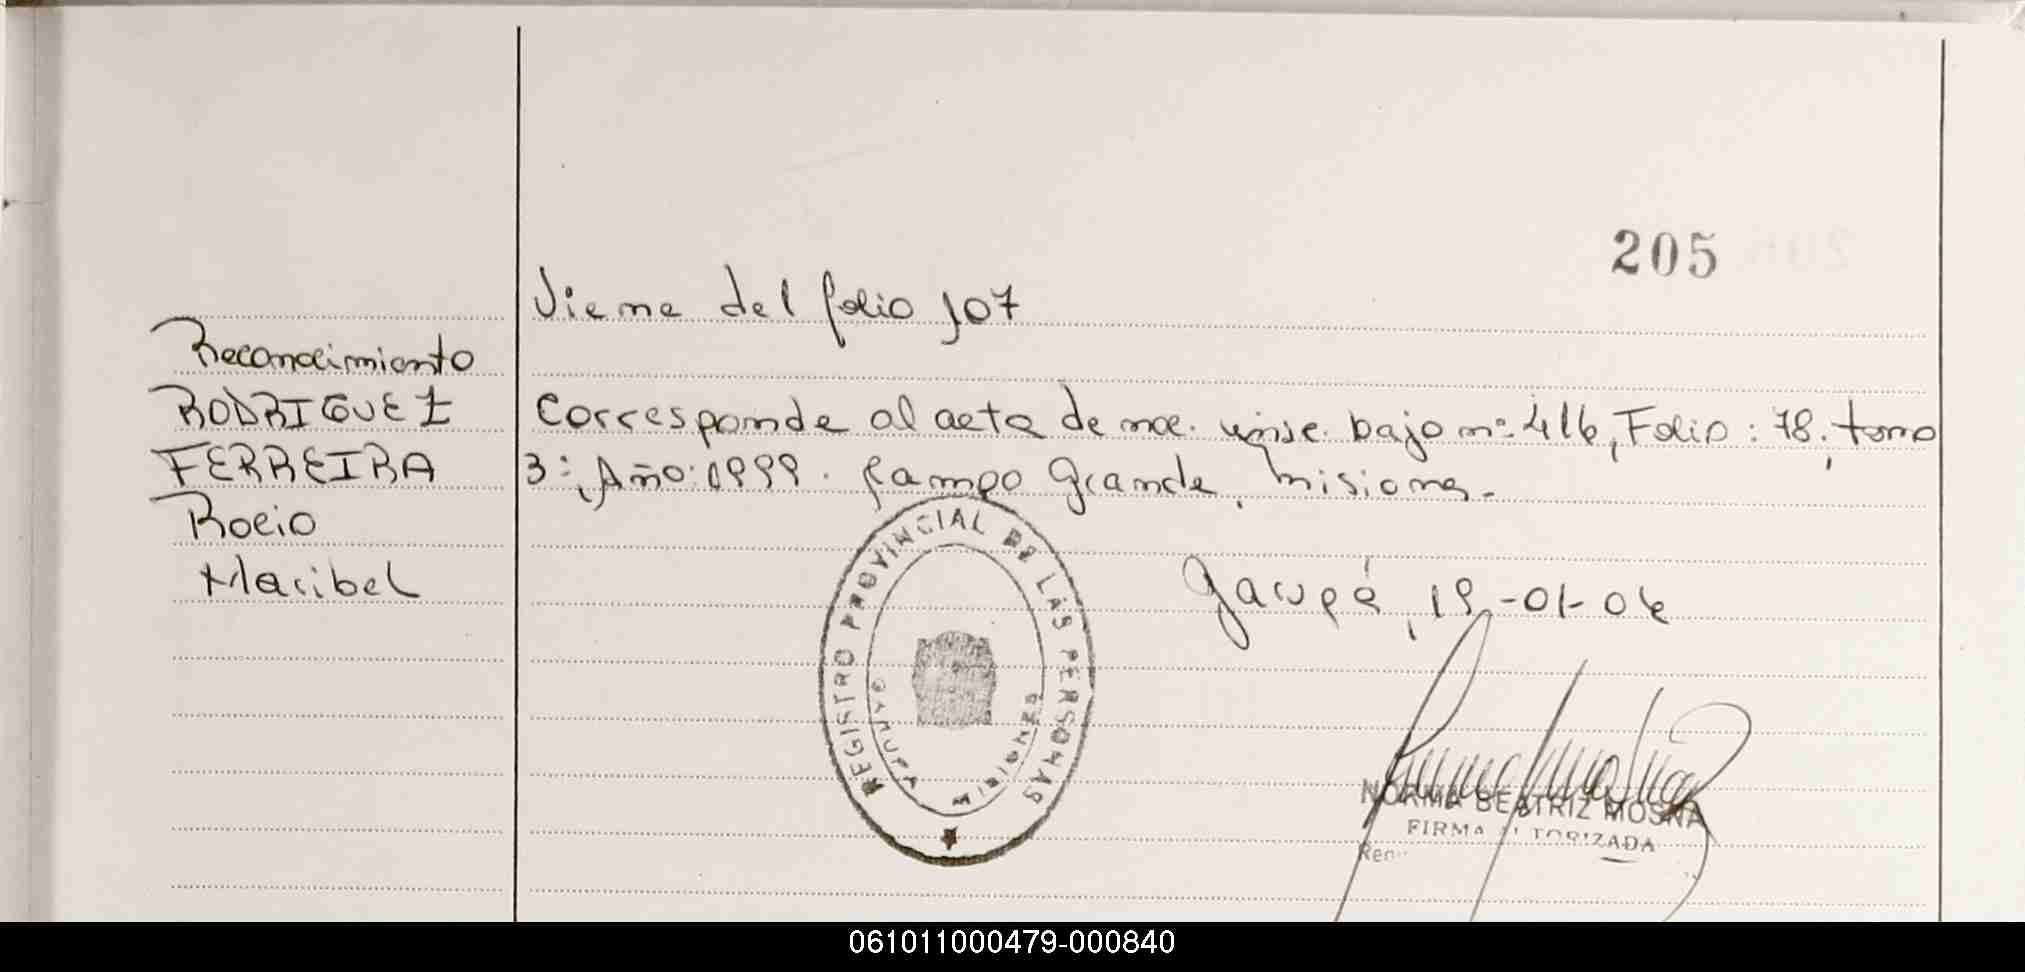 205
Viene del folio 107
Reconocimiento
RODRIGUEZ
FERREIRA
Rocio
Maribel
Corresponde al acta de nac. insc. bajo nº: 416, Folio: 78, tomo
3º, Año: 1999. Campo Grande, Misiones.
Garupá, 19-01-06
REGISTRO PROVINCIAL DE LAS PERSONAS
MISIONES
NORMA BEATRIZ MOSNA
FIRMA AUTORIZADA
061011000479-000840